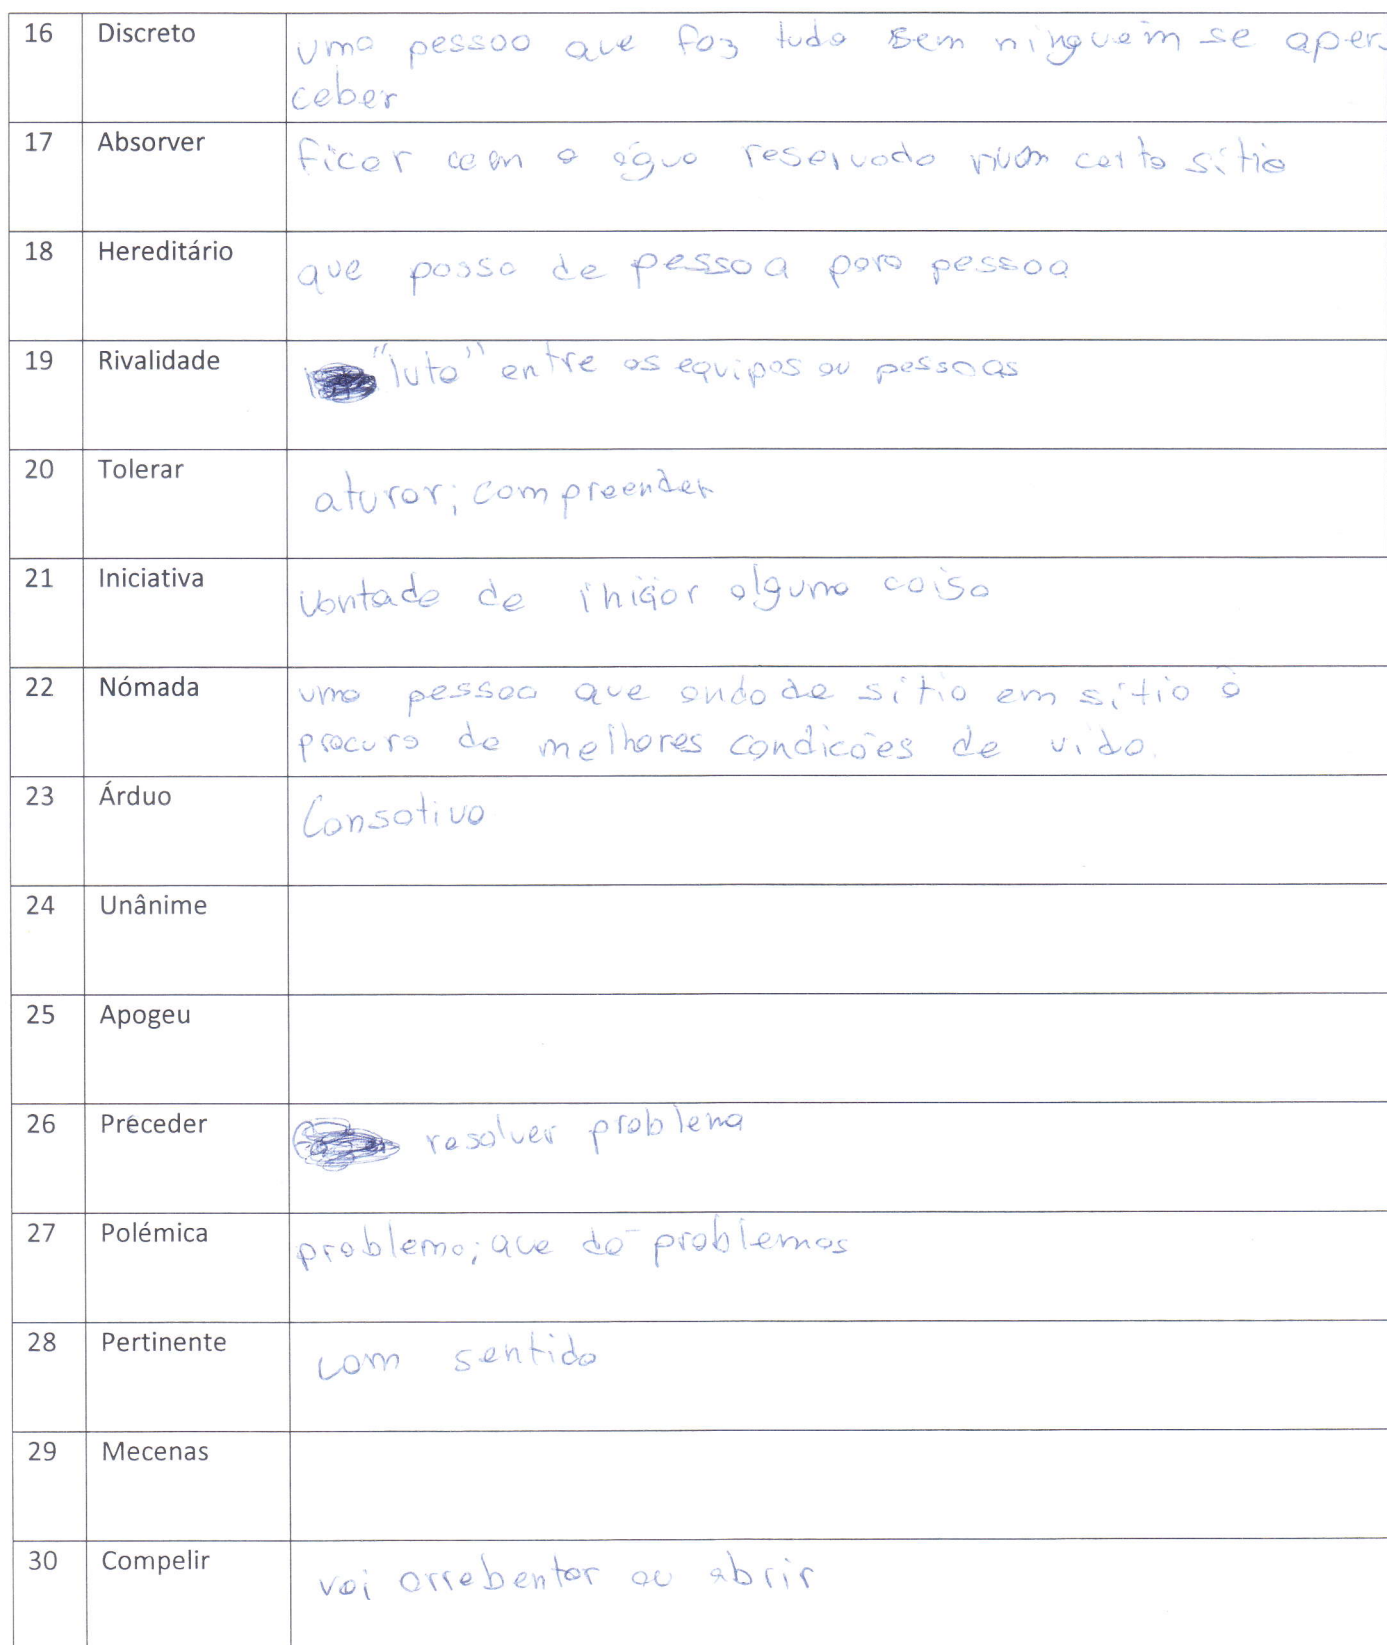 16 Discreto uma pessoa que faz tudo sem ninguém se aper-
ceber
17 Absorver ficar com a água reservada num certo sítio
18 Hereditário que passa de pessoa para pessoa
19 Rivalidade "luta" entre as equipas ou pessoas
20 Tolerar aturar; compreender
21 Iniciativa vontade de iniciar alguma coisa
22 Nómada uma pessoa que anda de sítio em sítio à
procura de melhores condicões de vida.
23 Árduo Cansativo
24 Unânime
25 Apogeu
26 Préceder resolver problema
27 Polémica problema; que dá problemas
28 Pertinente com sentido
29 Mecenas
30 Compelir vai arrebentar ou abrir